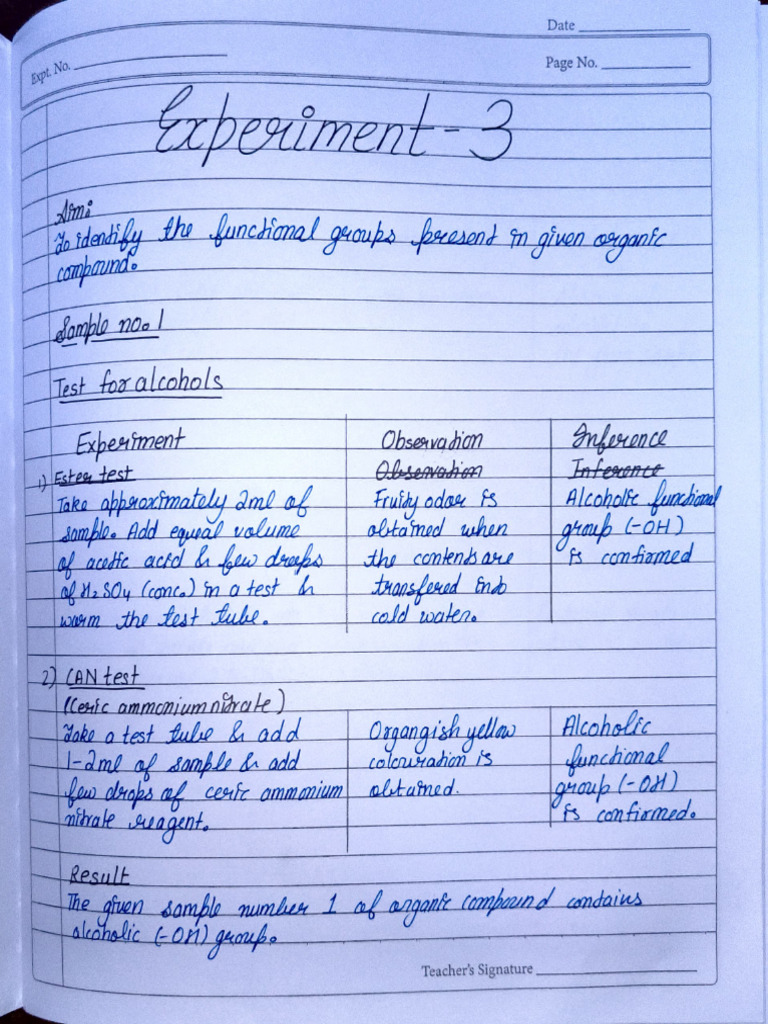 Date
Expt. No.
Page No.
Experiment-3
Aim:
To identify the functional groups present in given organic
compound.
Sample no. 1
Test for alcohols
Experiment Observation Inference
1) Ester test Observation Inference
Take approximately 2ml of Fruity odor is Alcoholic functional
sample. Add equal volume obtained when group (-OH)
of acetic acid & few droeps the contends are is confirmed
of H2SO4 (conc.) in a test & transfered into
warm the test tube. cold water.
2) CAN test
(Ceric ammonium nitrate)
Take a test tube & add Organgish yellow Alcoholic
1-2ml of sample & add colouration is functional
few drops of ceric ammonium obtained. group (-OH)
nitrate reagent. is confirmed.
Result
The given sample number 1 of organic compound contains
alcoholic (-OH) group.
Teacher's Signature